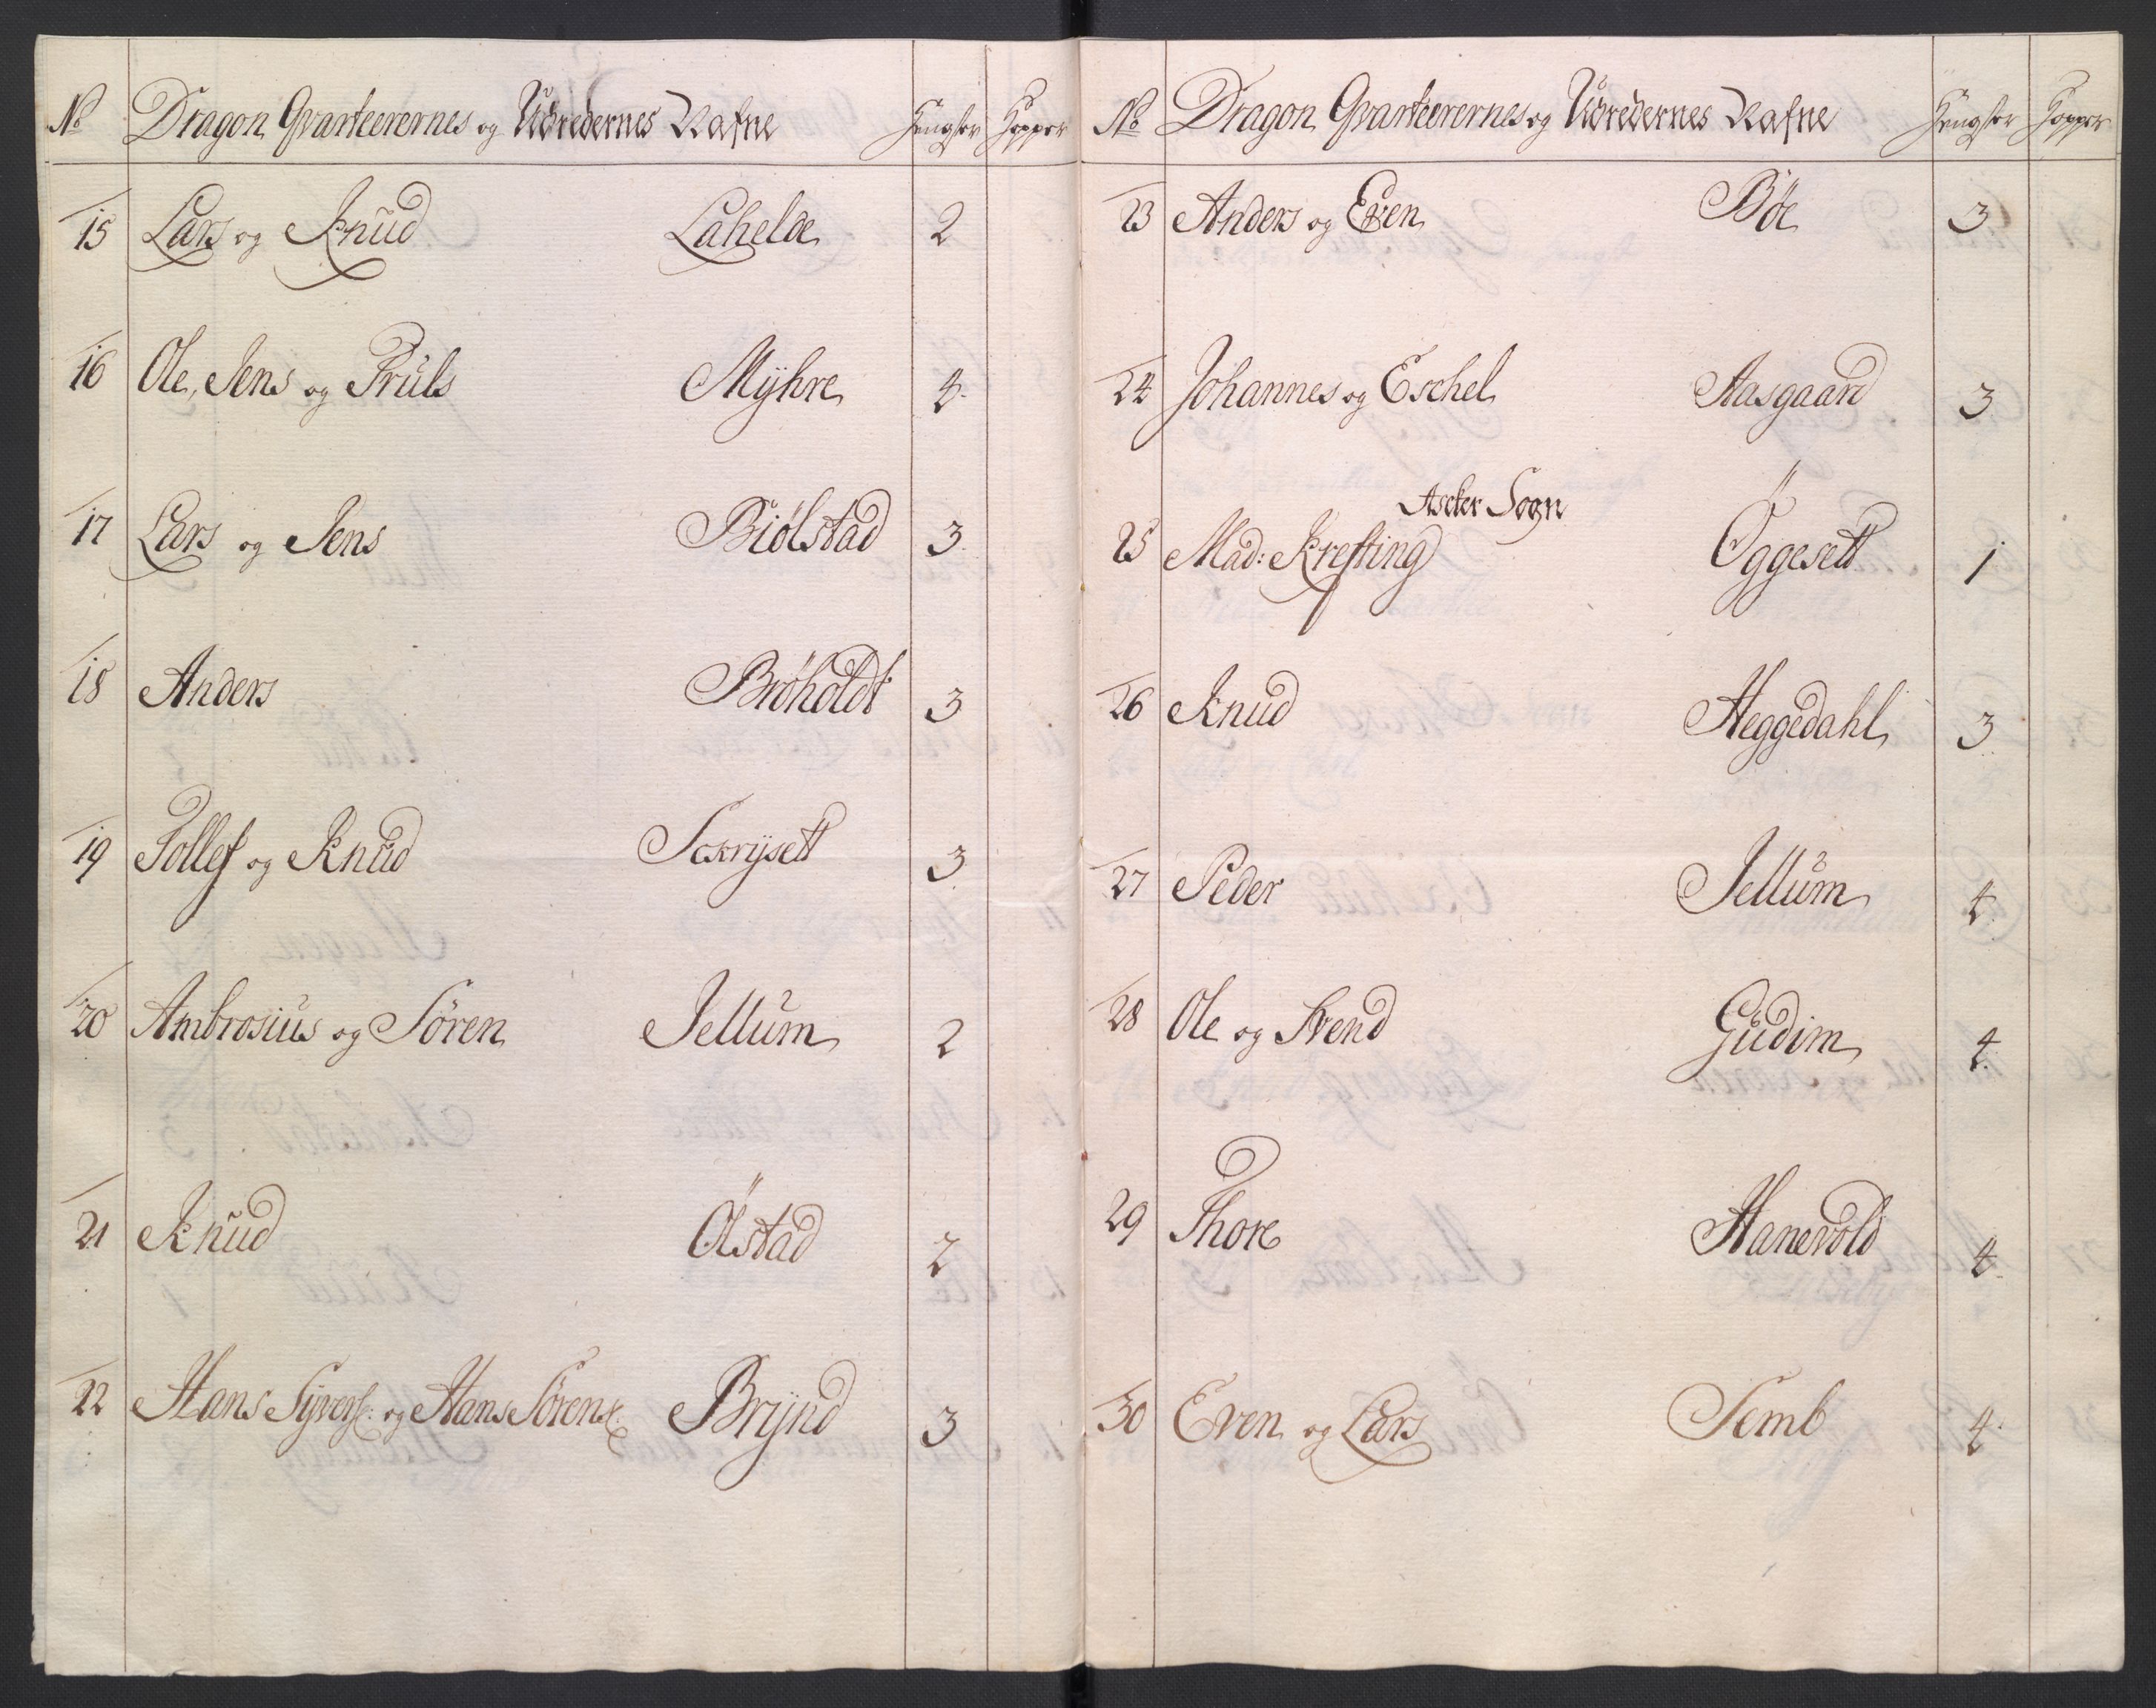 No Dragon Qvarteerernes og Udredernes Nafne Hengster Hopper
15 Lars og Knud Lahelde 2
16 Ole, Jens og Truls Mÿhre 4
17 Lars og Jens Biölstad 3
18 Anders Bröholdt 3
19 Tollef og Knud Sckrÿsett 3
20 Ambrosius og Sören Jellum 2
21 Knud Ölstad 2
22 Hans Syvers: og Hans Sörens: Brÿnd 3
No Dragon Qvarteerernes og Udredernes Nafne Hengster Hopper
23 Anders og Even Böe 3
24 Johannes og Eschel Aasgaard 3
Ascker Sogn
25 Mad: Krefting Öggesett 1
26 Knud Heggedahl 3
27 Peder Jellum 4
28 Ole og Svend Gudim 4
29 Thore Hanevold 4
30 Even og Lars Semb 4